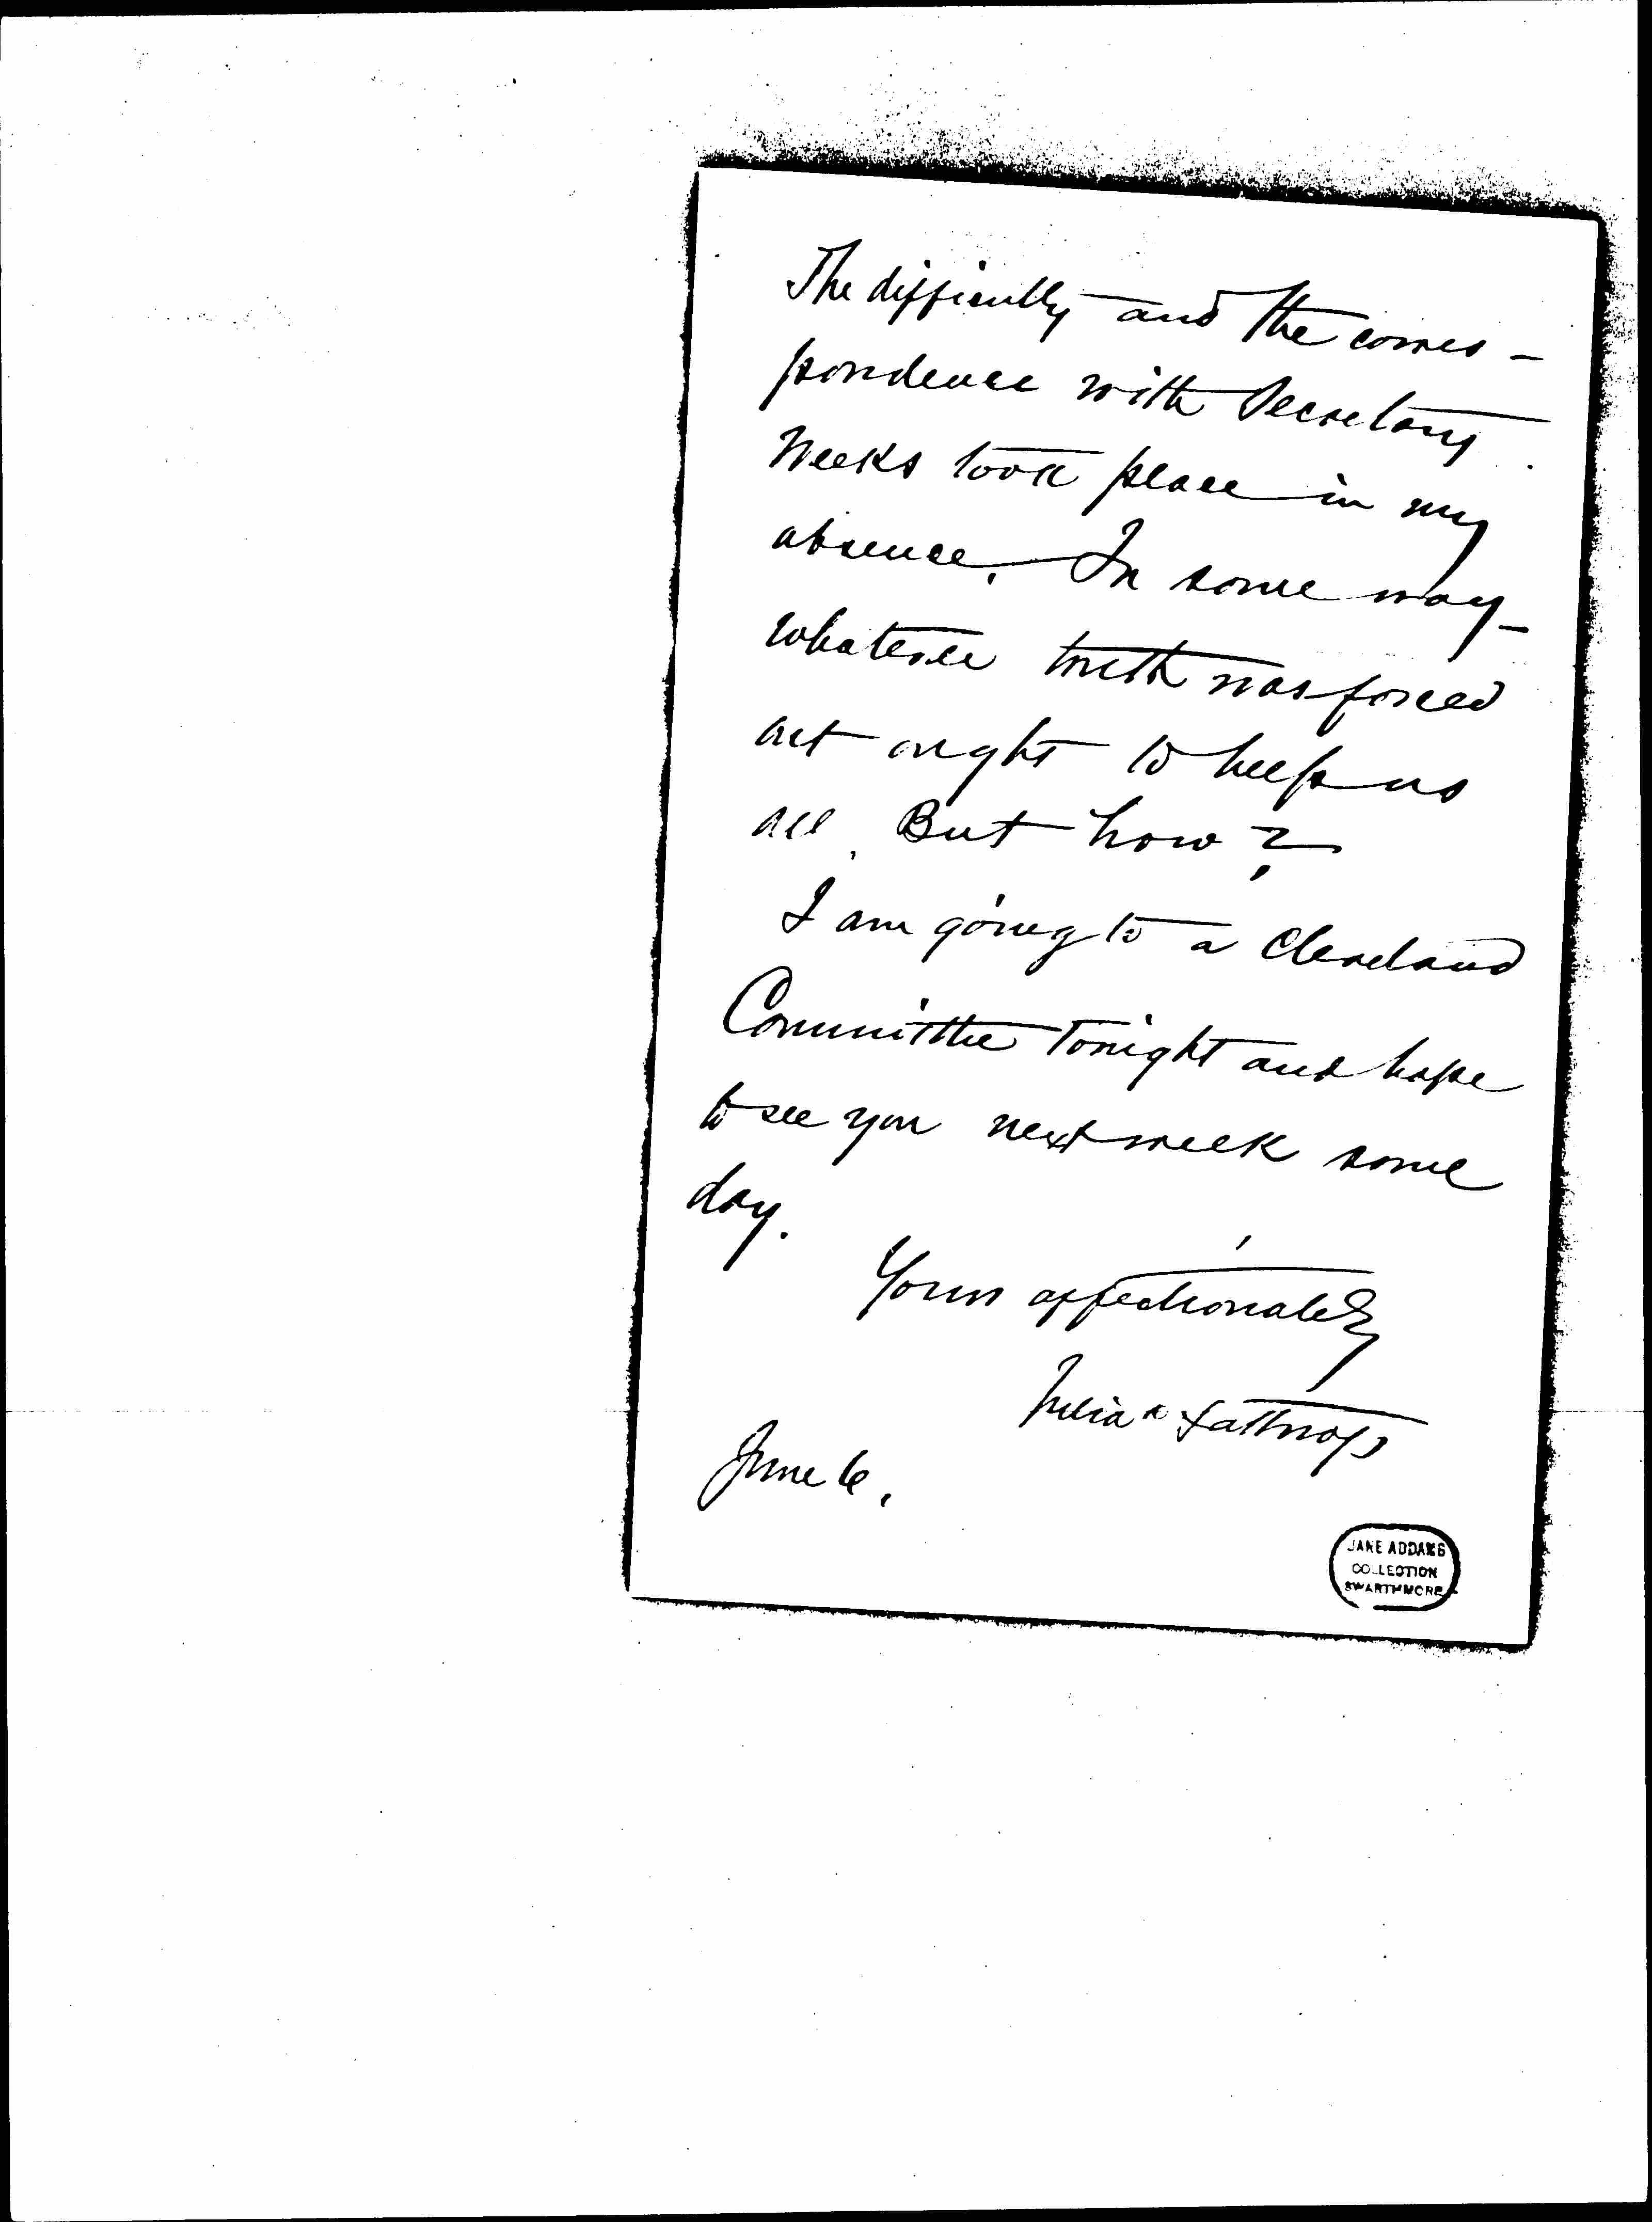 The difficulty and the corres-
pondence with Secretary
Weeks took place in my
absence. In some way-
whatever truth was forced
out ought to help us
all. But how?
I am going to a Cleveland
Committee tonight and hope
to see you next week some
day.
Yours affectionately
Julia C Lathrop
June 6.
JANE ADDAMS
COLLECTION
SWARTHMORE